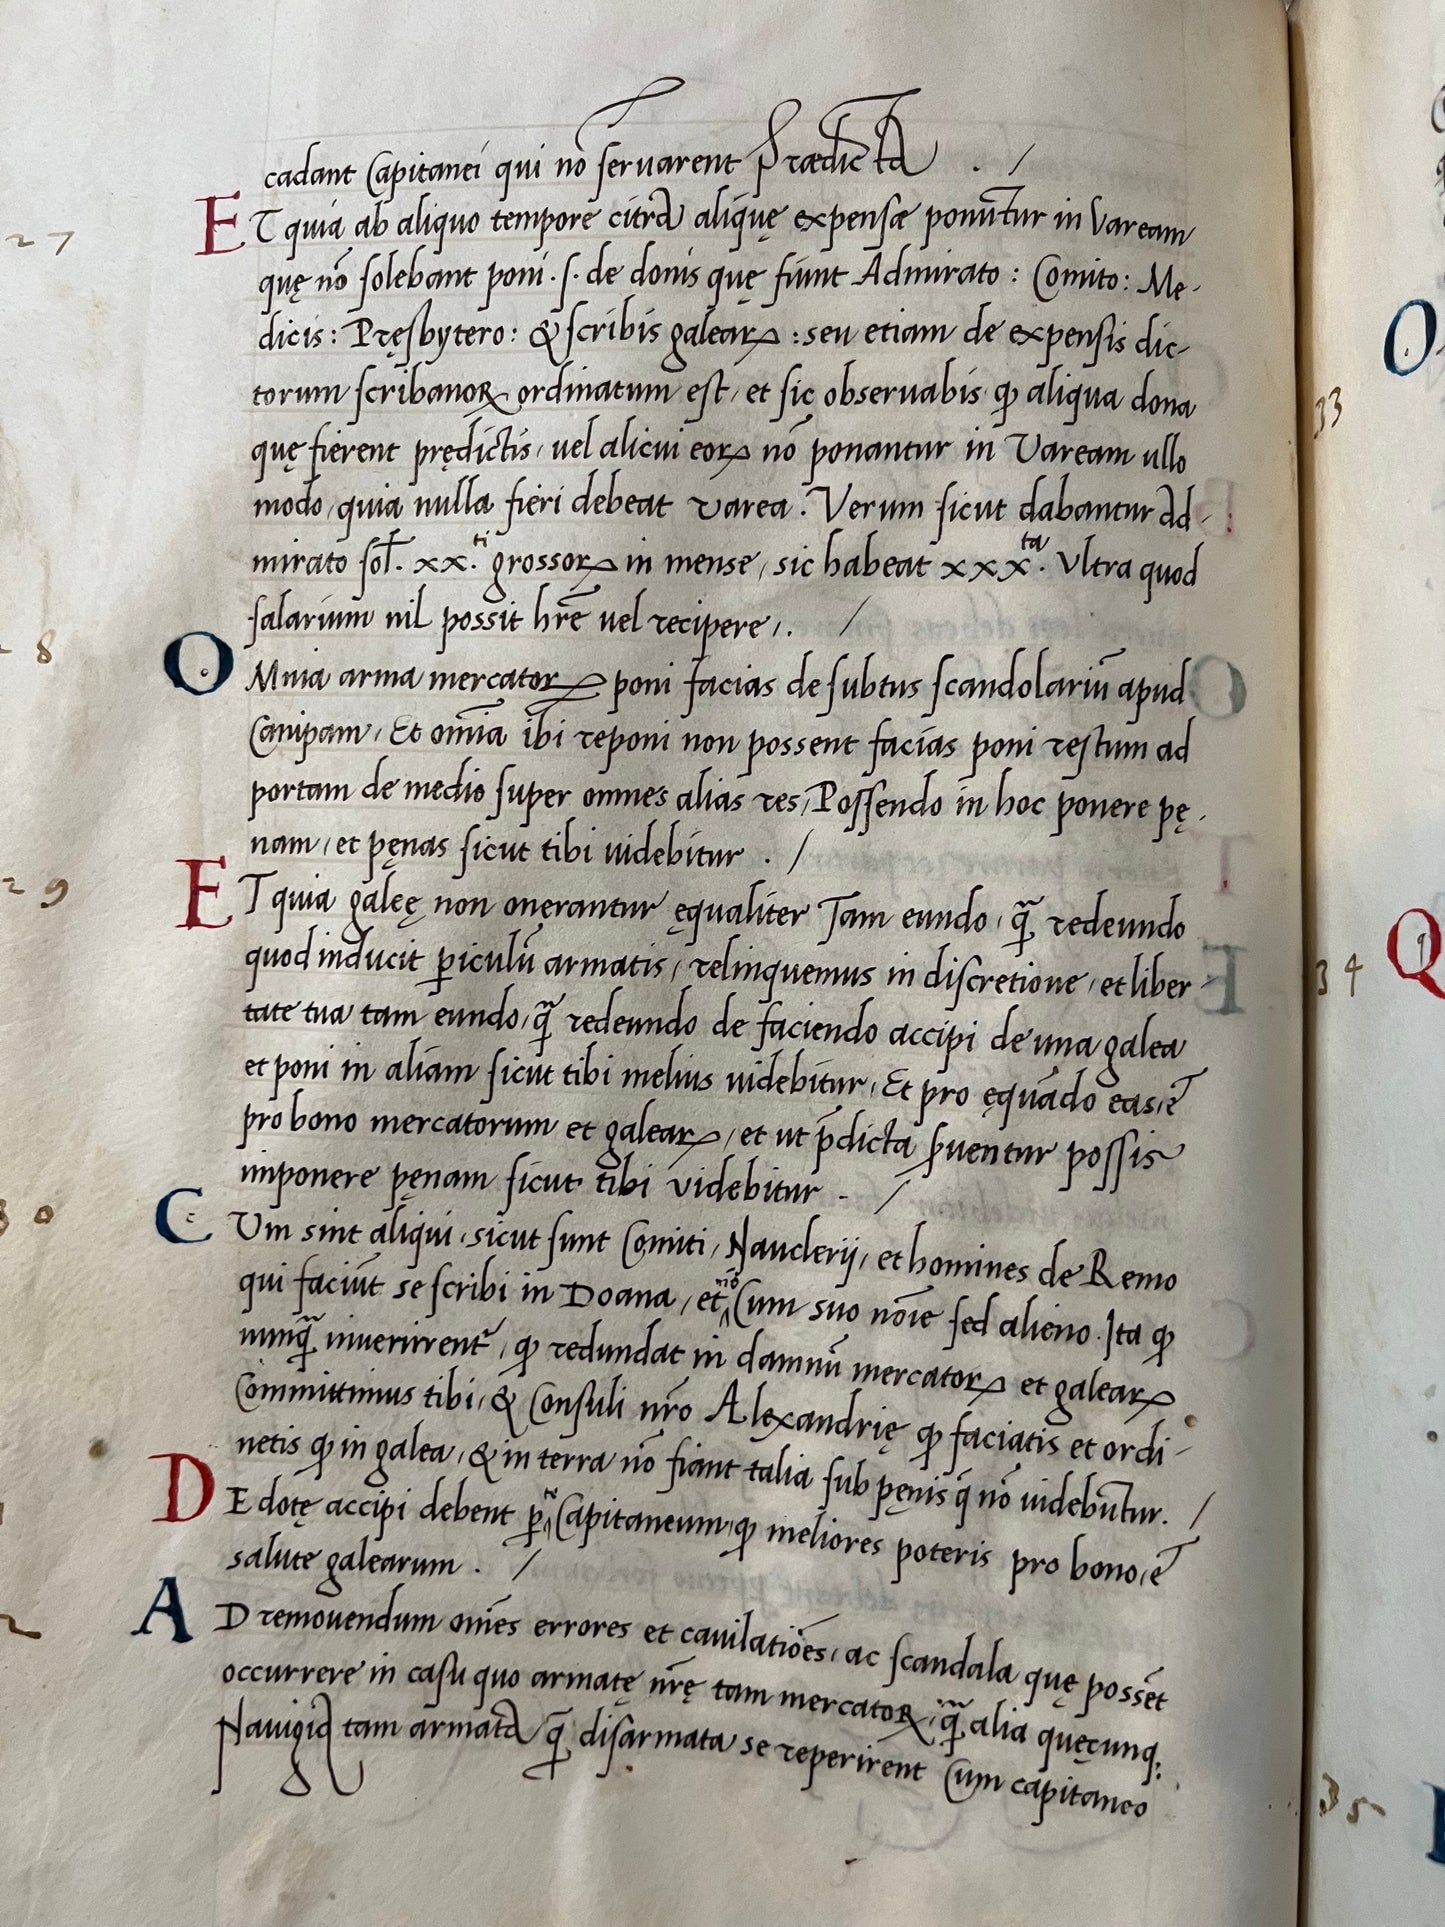 cadant Capitanei qui nõ seruarent Prædicta . /
27
ET quia ab aliquo tempore citra aliquę expensæ ponũtur in Vaream
quę nõ solebant poni . s . de donis quę fiunt Admirato : Comito : Me-
dicis : Pręsbytero : & scribis galearꝝ : seu etiam de expensis dic-
torum scribanoꝝ ordinatum est, et sic obseruabis ꝙ aliqua dona
quę fierent prędictis, uel alicui eorꝝ nõ ponantur in Vaream ullo
modo, quia nulla fieri debeat varea . Verum sicut dabantur Ad-
mirato sol̃. xx.ti grossorꝝ in mense, sic habeat xxx.ta Vltra quod
salarium nil possit hr̃e uel recipere, . /
8
OMnia arma mercatorꝝ poni facias de subtus scandolariũ apud
Canipam, Et om̃ia ibi reponi non possent facias poni restum ad
portam de medio super omnes alias res, Possendo in hoc ponere pę-
nam, et pęnas sicut tibi uidebitur . /
29
ET quia galeę non onęrantur ęqualiter Tam eundo, q̃ redeundo
quod inducit ꝑiculũ armatis, relinquemus in discretione, et liber-
tate tua tam eundo, q̃ redeundo de faciendo accipi de una galea
et poni in aliam sicut tibi melius uidebitur, Et pro ęquãdo eas, ẽ
pro bono mercatorum et galearꝝ, et ut p̃dicta ꝑuentur possis
imponere pęnam sicut tibi videbitur . /
30
CUm sint aliqui, sicut sunt Comiti, Nauclerij, et homines de Remo
qui faciũt se scribi in Doana, et nõ Cum suo nom̃e sed alieno . Ita ꝙ
nunq̃ inuenirent᷑, ꝙ redundat in damnũ mercatorꝝ et galearꝝ
Committimus tibi, & Consuli nr̃o Alexandrię ꝙ faciatis et ordi-
netis ꝙ in galea, & in terra nõ fiant talia sub pęnis q̃ nõ uidebũtur. /
DE dotę accipi debent ꝑ te Capitaneum, ꝙ meliores poteris pro bono, ẽ
salute galearum . /
2
AD remouendum om̃es errores et cauilatiões, ac scandala quę possẽt
occurrere in casu quo armatę nr̃ę tam mercatoꝝ, q̃ alia quęcunq;
Nauigia tam armata q̃ disarmata se reperirent Cum capitaneo
33
34
Q
35